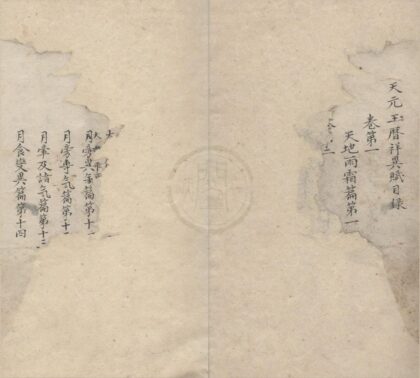 天元玉曆祥異賦目錄
卷第一
天地雨霜篇第一
二
月旁異氣篇第十一
月旁雲氣篇第十二
月暈及諸氣篇第十三
月食變異篇第十四